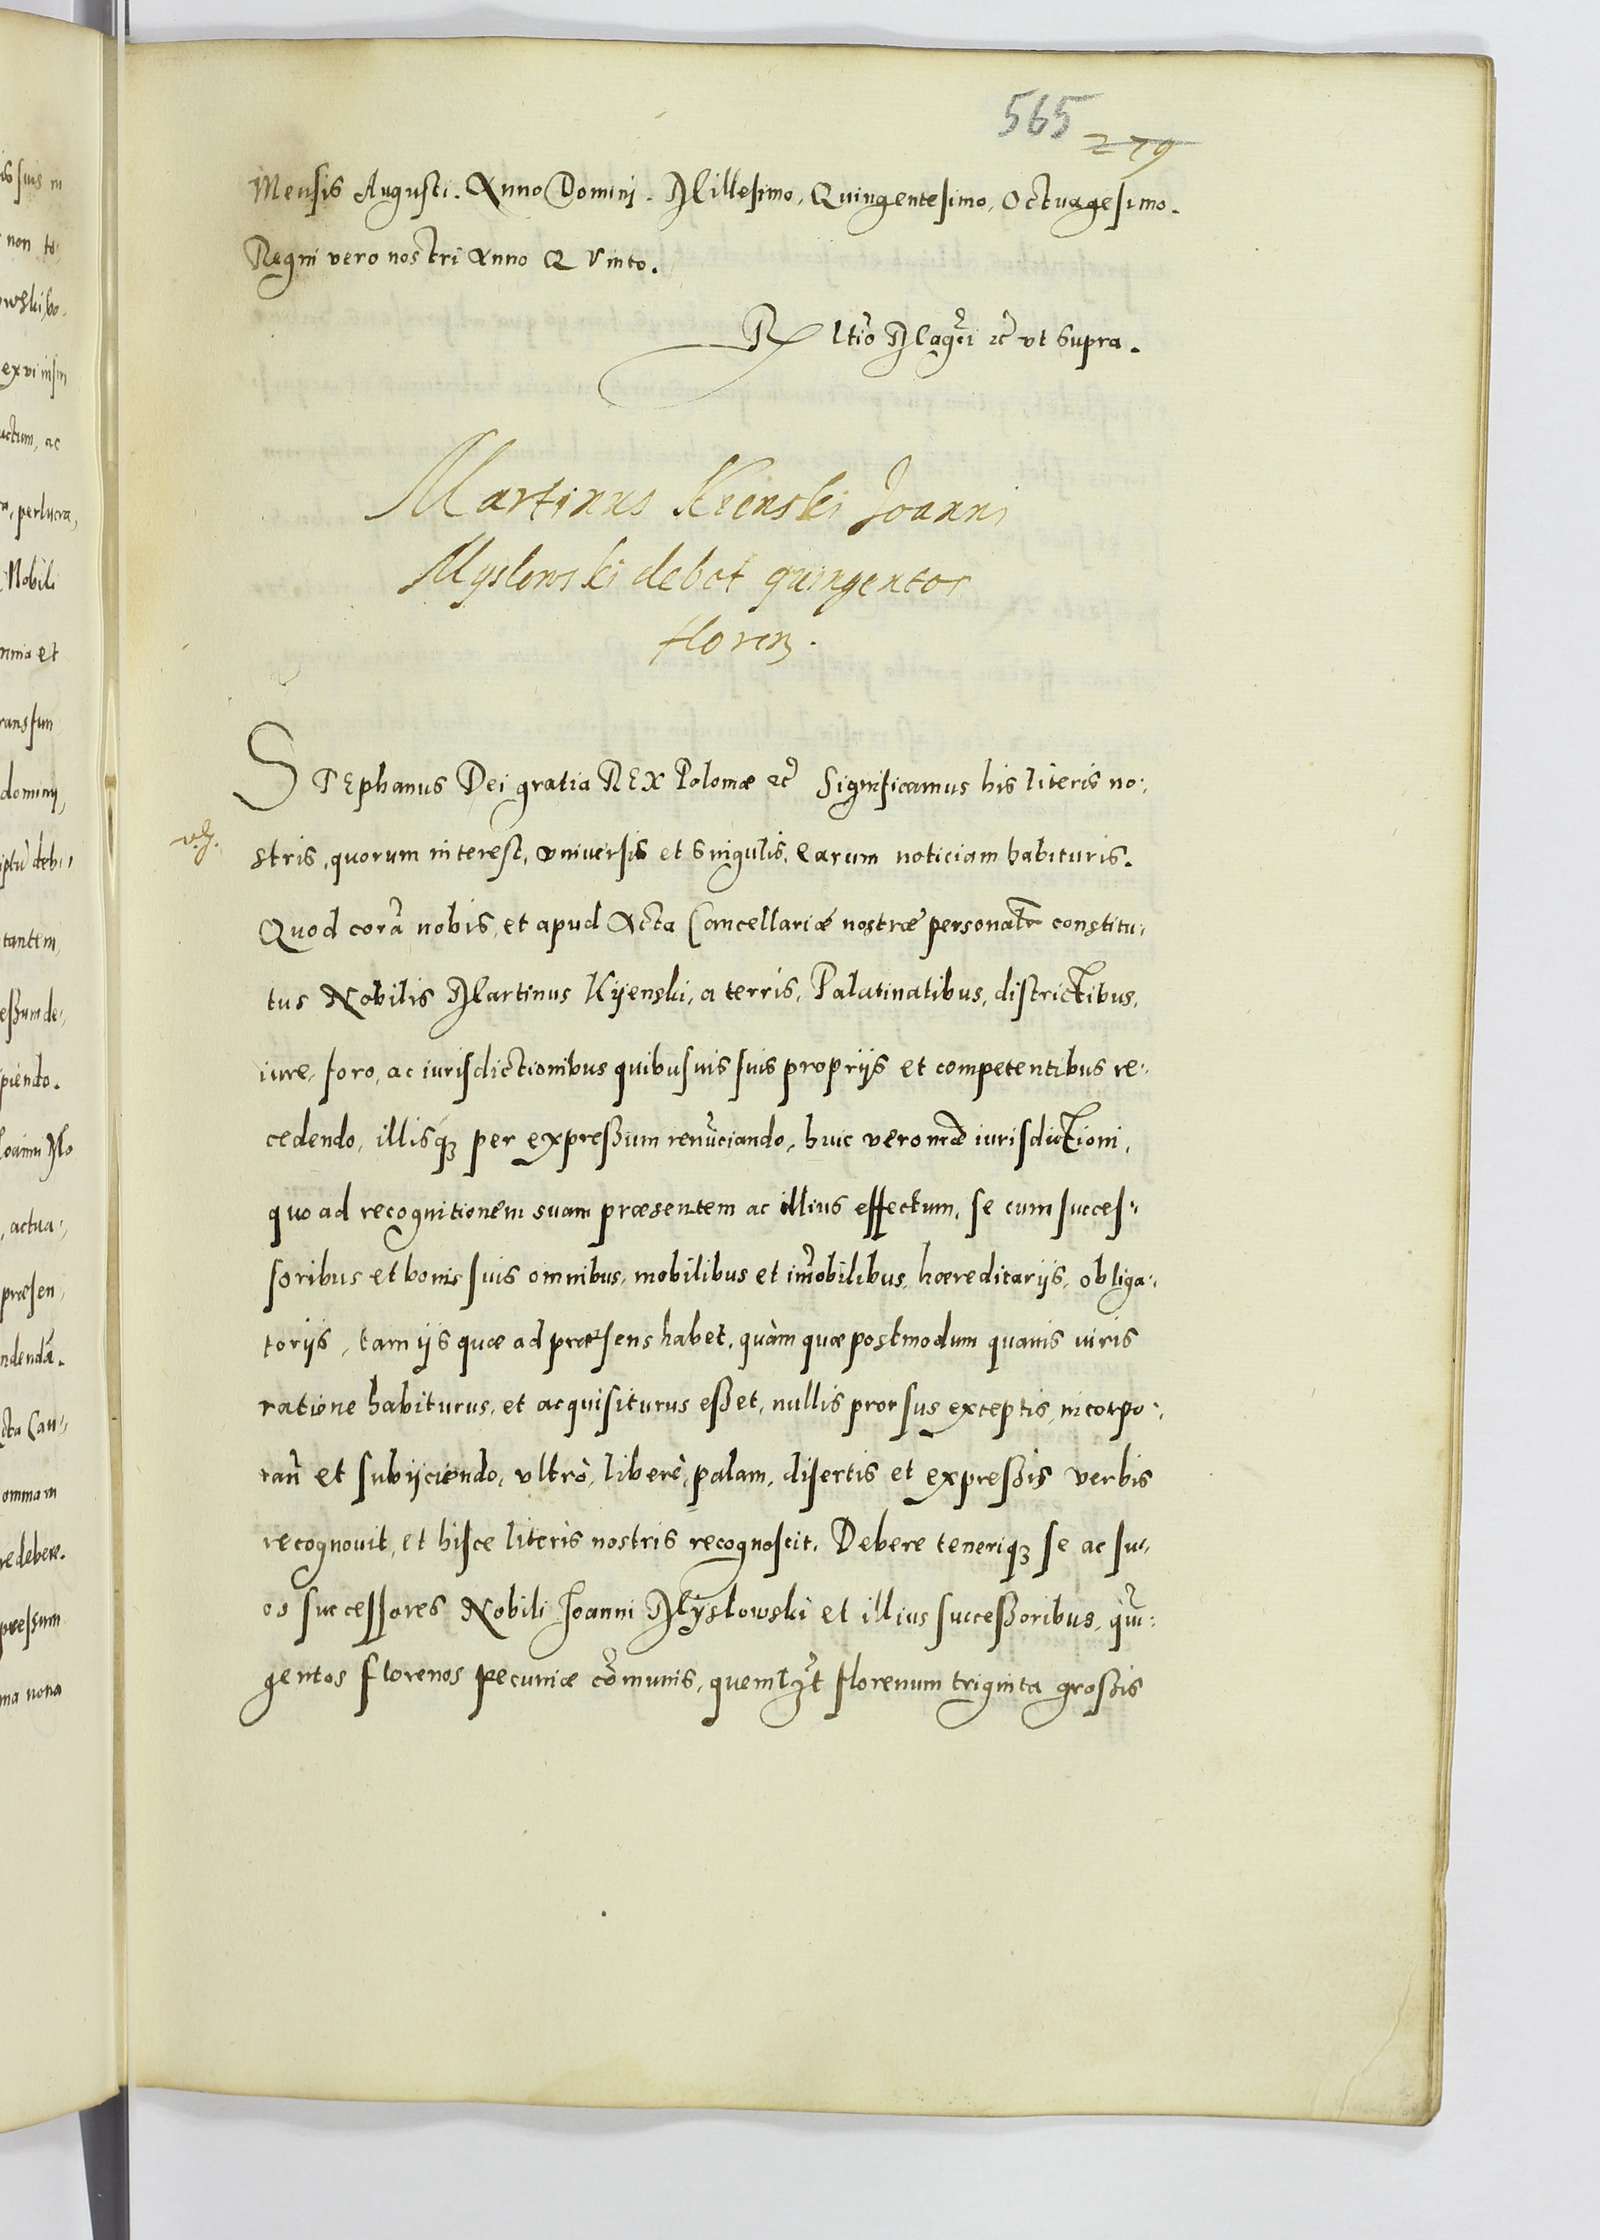 565
279
Mensis Augusti. Anno Domini. Millesimo, Quingentesimo, Octuagesimo.
Regni vero nostri Anno Quinto.
Rltio Magci etc ut Supra.
Martinus Kienski Joanni
Myslowski debet quingentos
floren.
STEphanus Dei gratia REX Poloniæ etc Significamus his literis no-
stris, quorum interest, universis et singulis, earum noticiam habituris.
Quod corã nobis, et apud Acta Cancellariæ nostræ personalr constitu-
tus Nobilis Martinus Kyenski, a terris, Palatinatibus, districtibus,
iure, foro, ac iurisdictionibus quibusvis suis proprijs et competentibus re-
cedendo, illisq3 per expreßum renũciando, huic vero nræ iurisdictioni,
quo ad recognitionem suam præsentem ac illius effectum, se cum succes-
soribus et bonis suis omnibus, mobilibus et im̃obilibus, hæreditarijs, obliga-
torijs, tam ijs quæ ad præsens habet, quàm quæ postmodum quavis iuris
ratione habiturus, et acquisiturus eßet, nullis prorsus exceptis, incorpo-
ran̄ et subijciendo, ultrò, liberè, palam, disertis et expreßis verbis
recognovit, et hisce literis nostris recognoscit. Debere teneriq3 se ac su-
os successores Nobili Joanni Mysłowski et illius succeßoribus, quĩ-
gentos florenos pecuniæ com̃unis, quemlꝫt florenum triginta großis